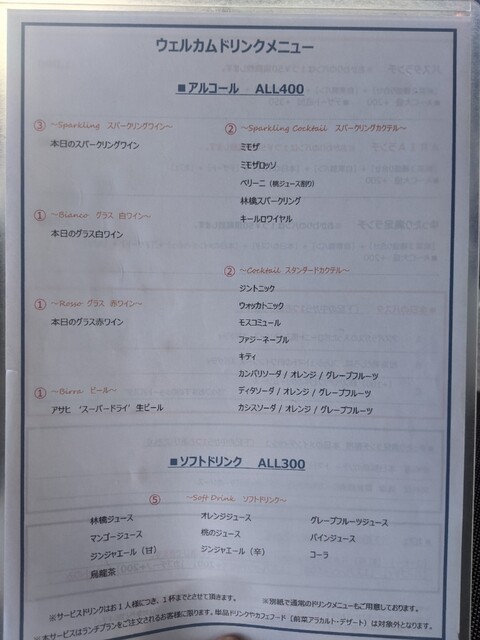 ウェルカムドリンクメニュー
■アルコール ALL400
③ ～Sparkling スパークリングワイン～
本日のスパークリングワイン
② ～Sparkling Cocktail スパークリングカクテル～
ミモザ
ミモザロッソ
ベリーニ（桃ジュース割り）
林檎スパークリング
キールロワイヤル
① ～Bianco グラス 白ワイン～
本日のグラス白ワイン
② ～Cocktail スタンダードカクテル～
ジントニック
ウォッカトニック
モスコミュール
ファジーネーブル
キティ
カンパリソーダ / オレンジ / グレープフルーツ
ディタソーダ / オレンジ / グレープフルーツ
カシスソーダ / オレンジ / グレープフルーツ
① ～Rosso グラス 赤ワイン～
本日のグラス赤ワイン
① ～Birra ビール～
アサヒ ‘スーパードライ’生ビール
■ソフトドリンク ALL300
⑤ ～Soft Drink ソフトドリンク～
林檎ジュース オレンジジュース グレープフルーツジュース
マンゴージュース 桃のジュース パインジュース
ジンジャエール（甘） ジンジャエール（辛） コーラ
烏龍茶
※サービスドリンクはお１人様につき、１杯までとさせて頂きます。 ※別紙で通常のドリンクメニューもご用意しております。
※本サービスはランチプランをご注文されるお客様に限ります。単品ドリンクやカフェフード【前菜アラカルト・デザート】は対象外となります。